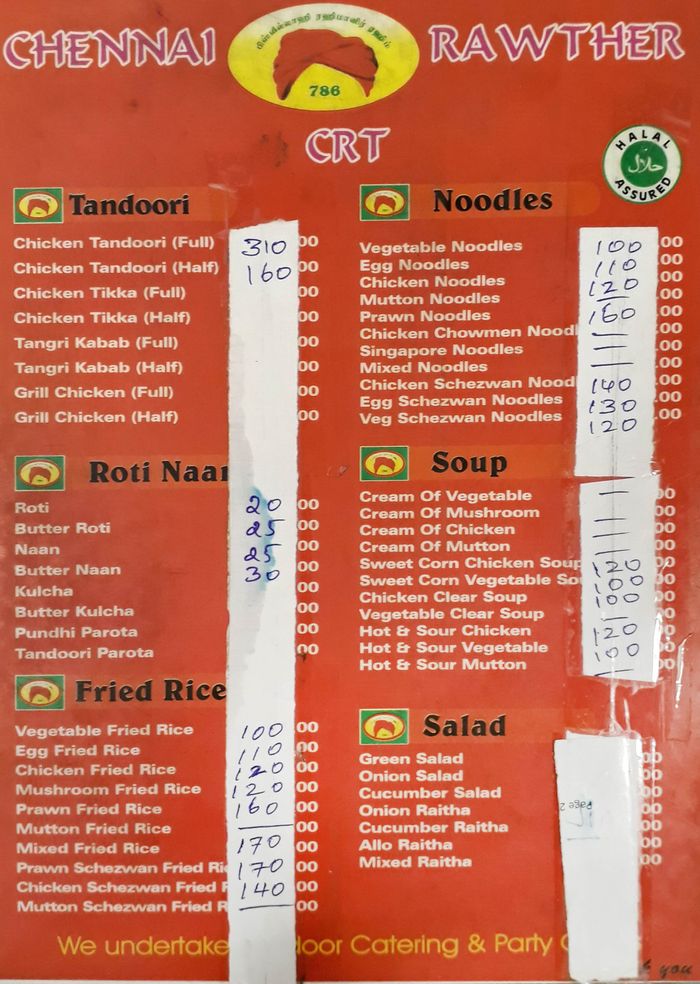 CHENNAI RAWTHER
786
CRT
HALAL
حلال
ASSURED
Tandoori
Chicken Tandoori (Full) 310 00
Chicken Tandoori (Half) 160 00
Chicken Tikka (Full) 00
Chicken Tikka (Half) 00
Tangri Kabab (Full) 00
Tangri Kabab (Half) 00
Grill Chicken (Full) 00
Grill Chicken (Half) 00
Roti Naan
Roti 20 00
Butter Roti 25 00
Naan 25 00
Butter Naan 30 00
Kulcha 00
Butter Kulcha 00
Pundhi Parota 00
Tandoori Parota 00
Fried Rice
Vegetable Fried Rice 100 00
Egg Fried Rice 110 00
Chicken Fried Rice 120 00
Mushroom Fried Rice 120 00
Prawn Fried Rice 160 00
Mutton Fried Rice — 00
Mixed Fried Rice 170 00
Prawn Schezwan Fried Ri 170 00
Chicken Schezwan Fried F 140 00
Mutton Schezwan Fried R — 00
Noodles
Vegetable Noodles 100 .00
Egg Noodles 110 .00
Chicken Noodles 120 .00
Mutton Noodles — .00
Prawn Noodles 160 .00
Chicken Chowmen Noodl — .00
Singapore Noodles — .00
Mixed Noodles — .00
Chicken Schezwan Nood 140 .00
Egg Schezwan Noodles 130 .00
Veg Schezwan Noodles 120 .00
Soup
Cream Of Vegetable — 00
Cream Of Mushroom — 00
Cream Of Chicken — 00
Cream Of Mutton — 00
Sweet Corn Chicken Soup 120 00
Sweet Corn Vegetable Sou 100 00
Chicken Clear Soup 100 00
Vegetable Clear Soup — 00
Hot & Sour Chicken 120 00
Hot & Sour Vegetable 100 00
Hot & Sour Mutton — 00
Salad
Green Salad 00
Onion Salad 00
Cucumber Salad 00
Onion Raitha 00
Cucumber Raitha 00
Allo Raitha 00
Mixed Raitha 00
Page 2
We undertake door Catering & Party
you